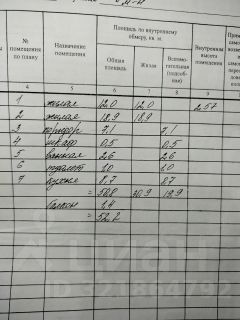 Площадь по внутреннему обмеру, кв. м.
№ помещения по плану
Назначение помещения
Общая площадь
Жилая
Вспомогательная (подсобная)
Внутренняя высота помещения
4 5 6 7 8 9
1 жилая 12,0 12,0 2.57
2 жилая 18,9 18,9
3 коридор 7,1 7,1
4 шкаф 0,5 0,5
5 ванная 2,6 2,6
6 туалет 1,0 1,0
7 кухня 8,7 8,7
= 50,8 30,9 19,9
балкон 1,4
= 52,2